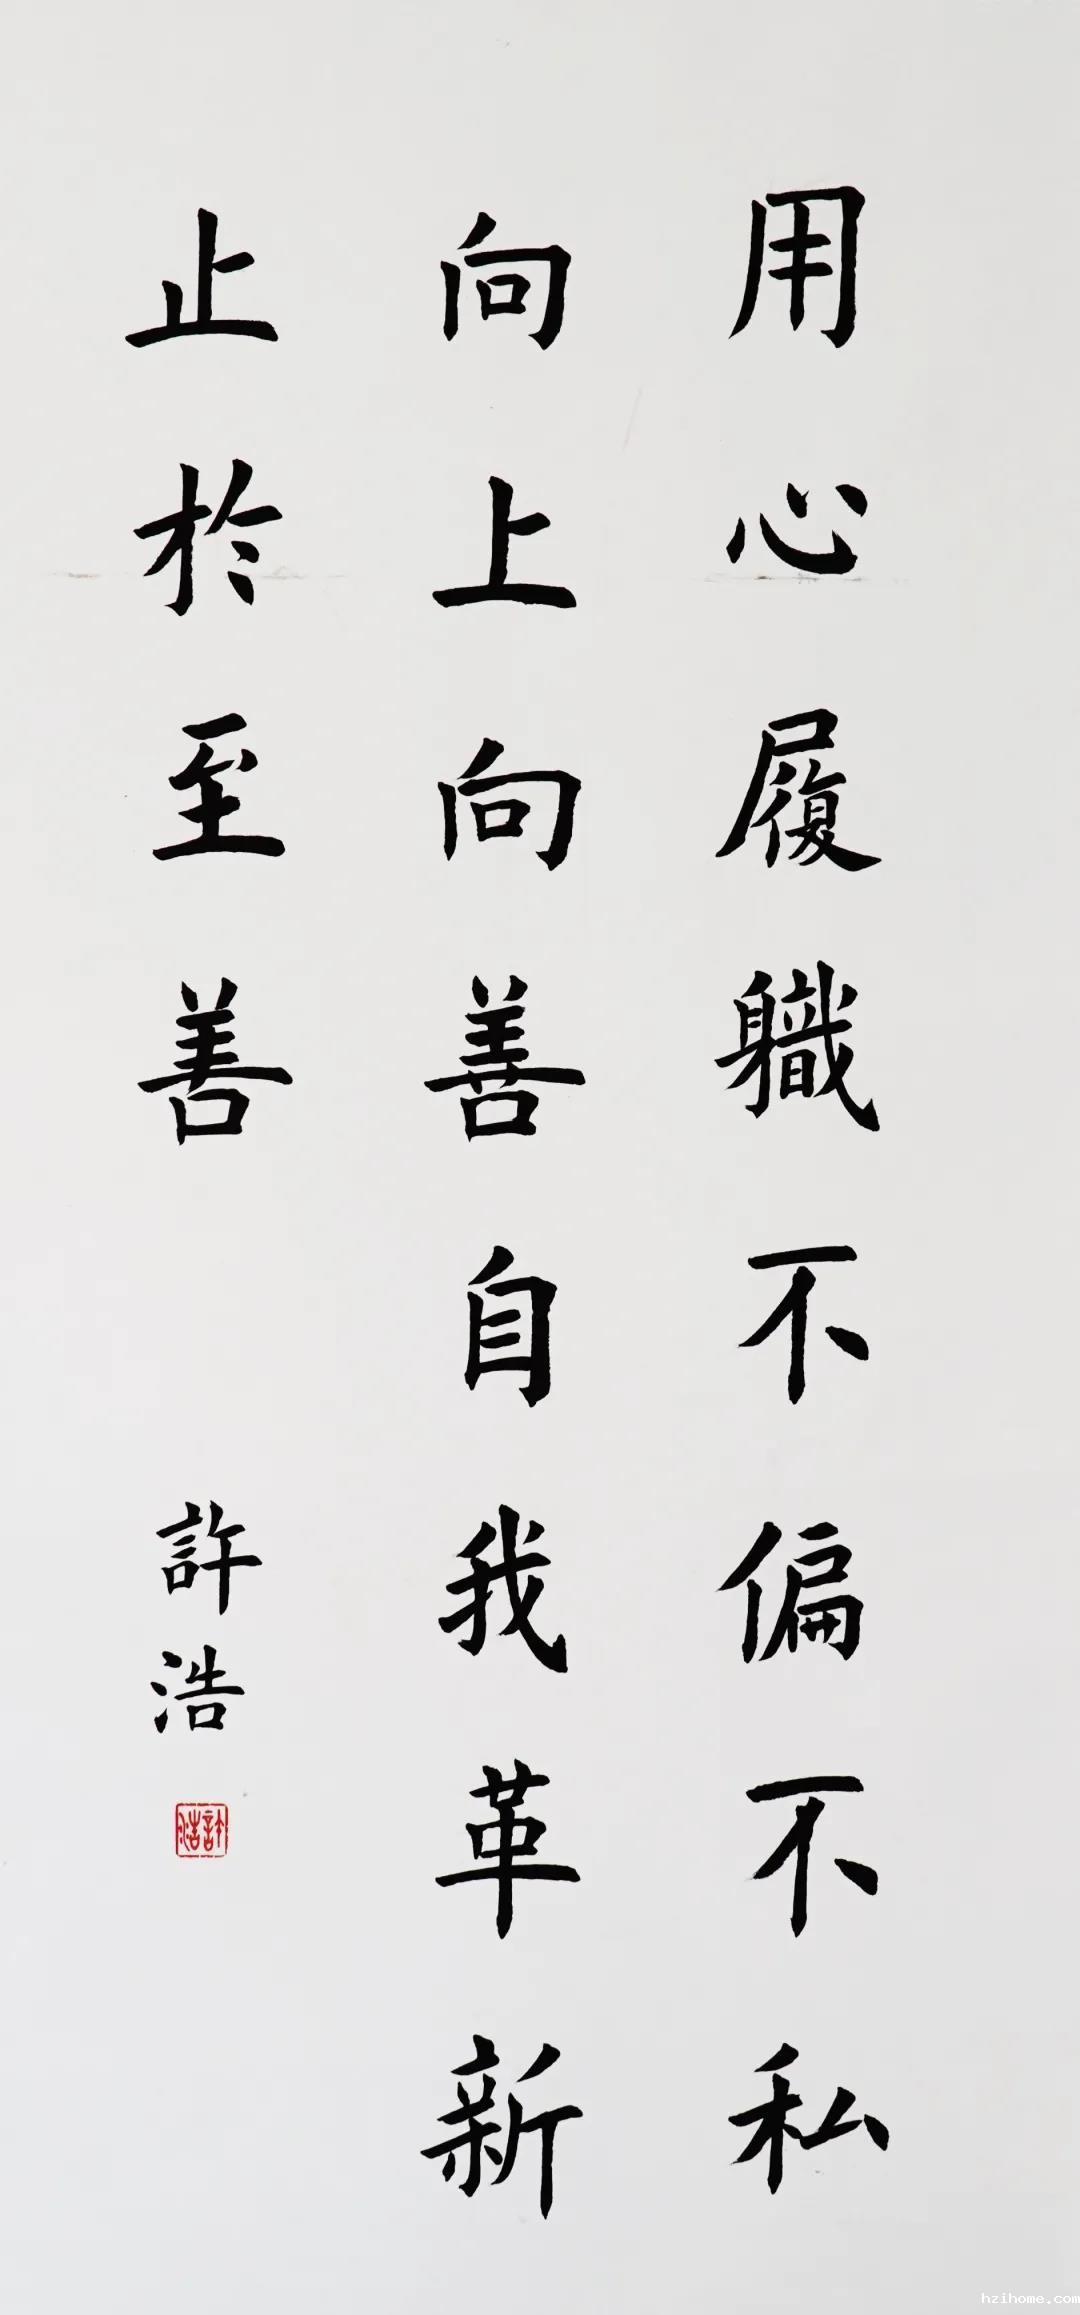 用心履職不偏不私
向上向善自我革新
止於至善
許浩
許浩
hzihome.com